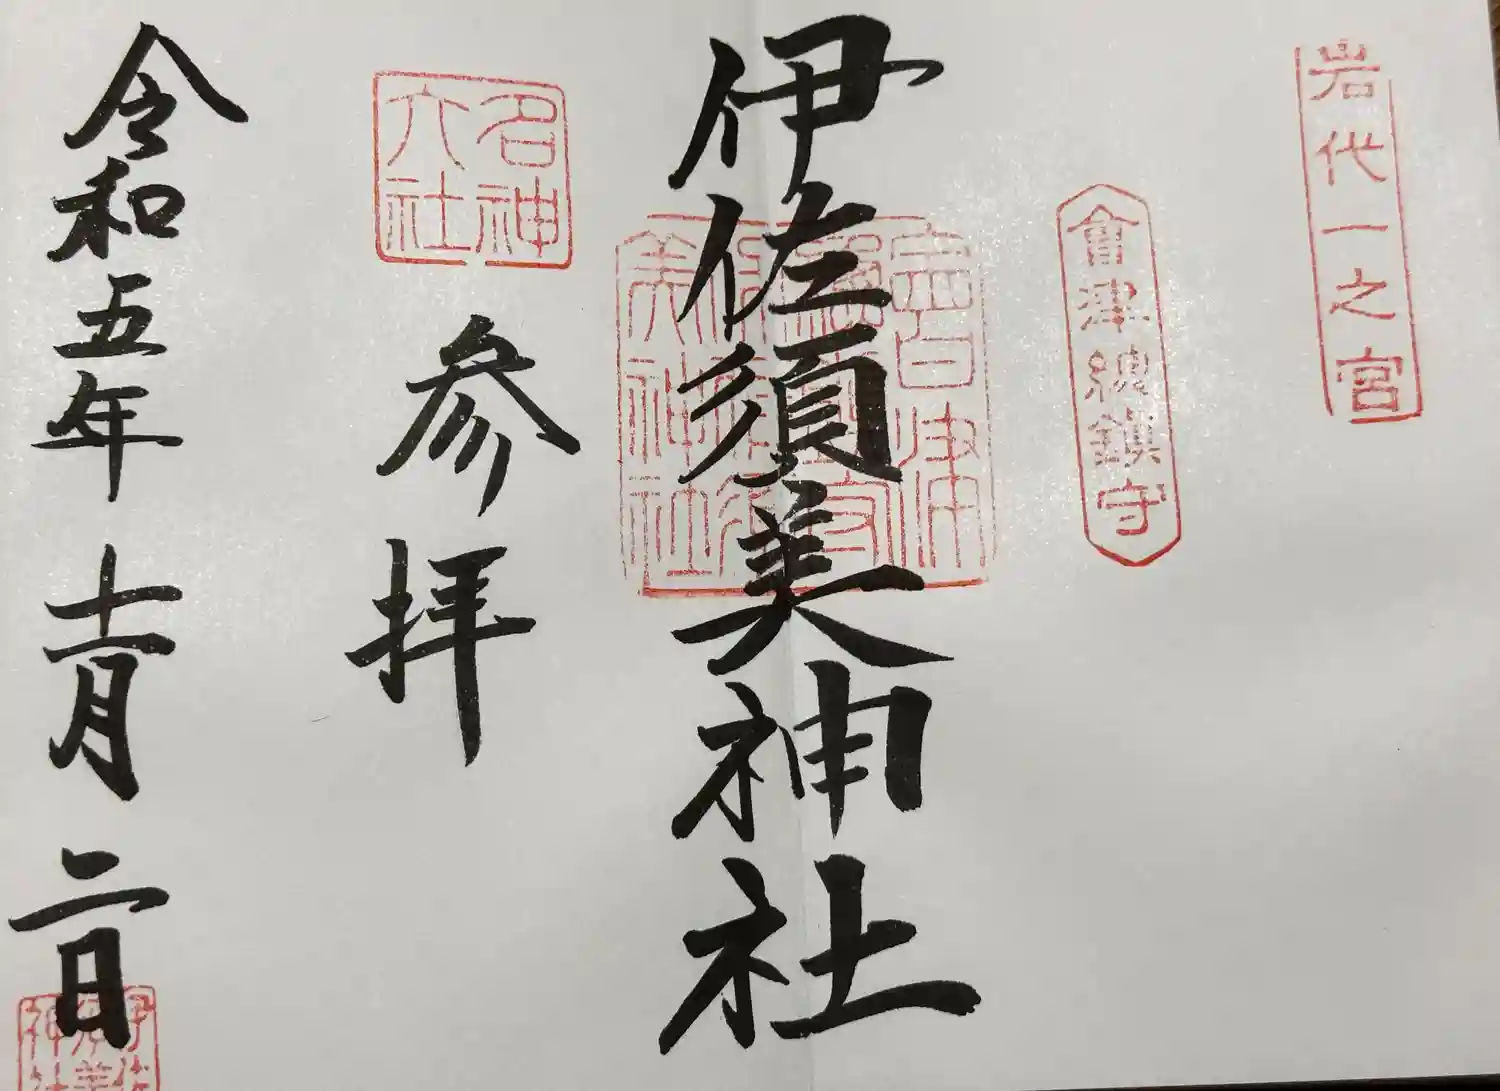 岩代一之宮
會津總鎮守
伊佐須美神社
名神
六社
参拝
令和五年十一月二日